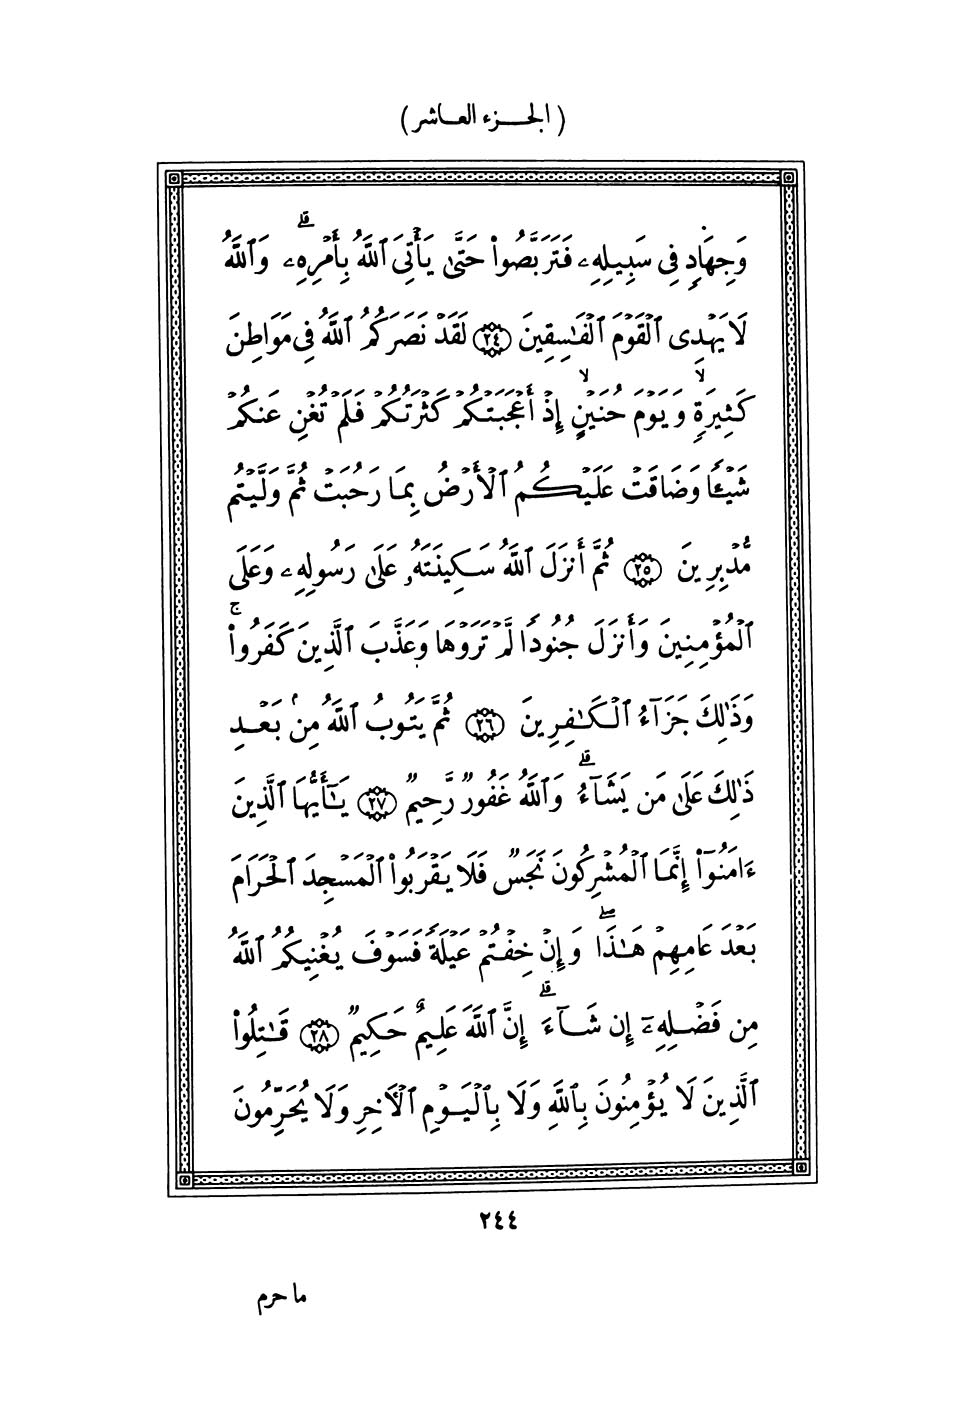 (الجزء العاشر)
وَجِهَادٍ فِى سَبِيلِهِۦ فَتَرَبَّصُوا۟ حَتَّىٰ يَأْتِىَ ٱللَّهُ بِأَمْرِهِۦ ۗ وَٱللَّهُ
لَا يَهْدِى ٱلْقَوْمَ ٱلْفَـٰسِقِينَ ۝٢٤ لَقَدْ نَصَرَكُمُ ٱللَّهُ فِى مَوَاطِنَ
كَثِيرَةٍ ۙ وَيَوْمَ حُنَيْنٍ ۙ إِذْ أَعْجَبَتْكُمْ كَثْرَتُكُمْ فَلَمْ تُغْنِ عَنكُمْ
شَيْـًٔا وَضَاقَتْ عَلَيْكُمُ ٱلْأَرْضُ بِمَا رَحُبَتْ ثُمَّ وَلَّيْتُم
مُّدْبِرِينَ ۝٢٥ ثُمَّ أَنزَلَ ٱللَّهُ سَكِينَتَهُۥ عَلَىٰ رَسُولِهِۦ وَعَلَى
ٱلْمُؤْمِنِينَ وَأَنزَلَ جُنُودًا لَّمْ تَرَوْهَا وَعَذَّبَ ٱلَّذِينَ كَفَرُوا۟ ۚ
وَذَٰلِكَ جَزَآءُ ٱلْكَـٰفِرِينَ ۝٢٦ ثُمَّ يَتُوبُ ٱللَّهُ مِنۢ بَعْدِ
ذَٰلِكَ عَلَىٰ مَن يَشَآءُ ۗ وَٱللَّهُ غَفُورٌ رَّحِيمٌ ۝٢٧ يَـٰٓأَيُّهَا ٱلَّذِينَ
ءَامَنُوٓا۟ إِنَّمَا ٱلْمُشْرِكُونَ نَجَسٌ فَلَا يَقْرَبُوا۟ ٱلْمَسْجِدَ ٱلْحَرَامَ
بَعْدَ عَامِهِمْ هَـٰذَا ۖ وَإِنْ خِفْتُمْ عَيْلَةً فَسَوْفَ يُغْنِيكُمُ ٱللَّهُ
مِن فَضْلِهِۦٓ إِن شَآءَ ۗ إِنَّ ٱللَّهَ عَلِيمٌ حَكِيمٌ ۝٢٨ قَـٰتِلُوا۟
ٱلَّذِينَ لَا يُؤْمِنُونَ بِٱللَّهِ وَلَا بِٱلْيَوْمِ ٱلْـَٔاخِرِ وَلَا يُحَرِّمُونَ
٢٤٤
ما حرم